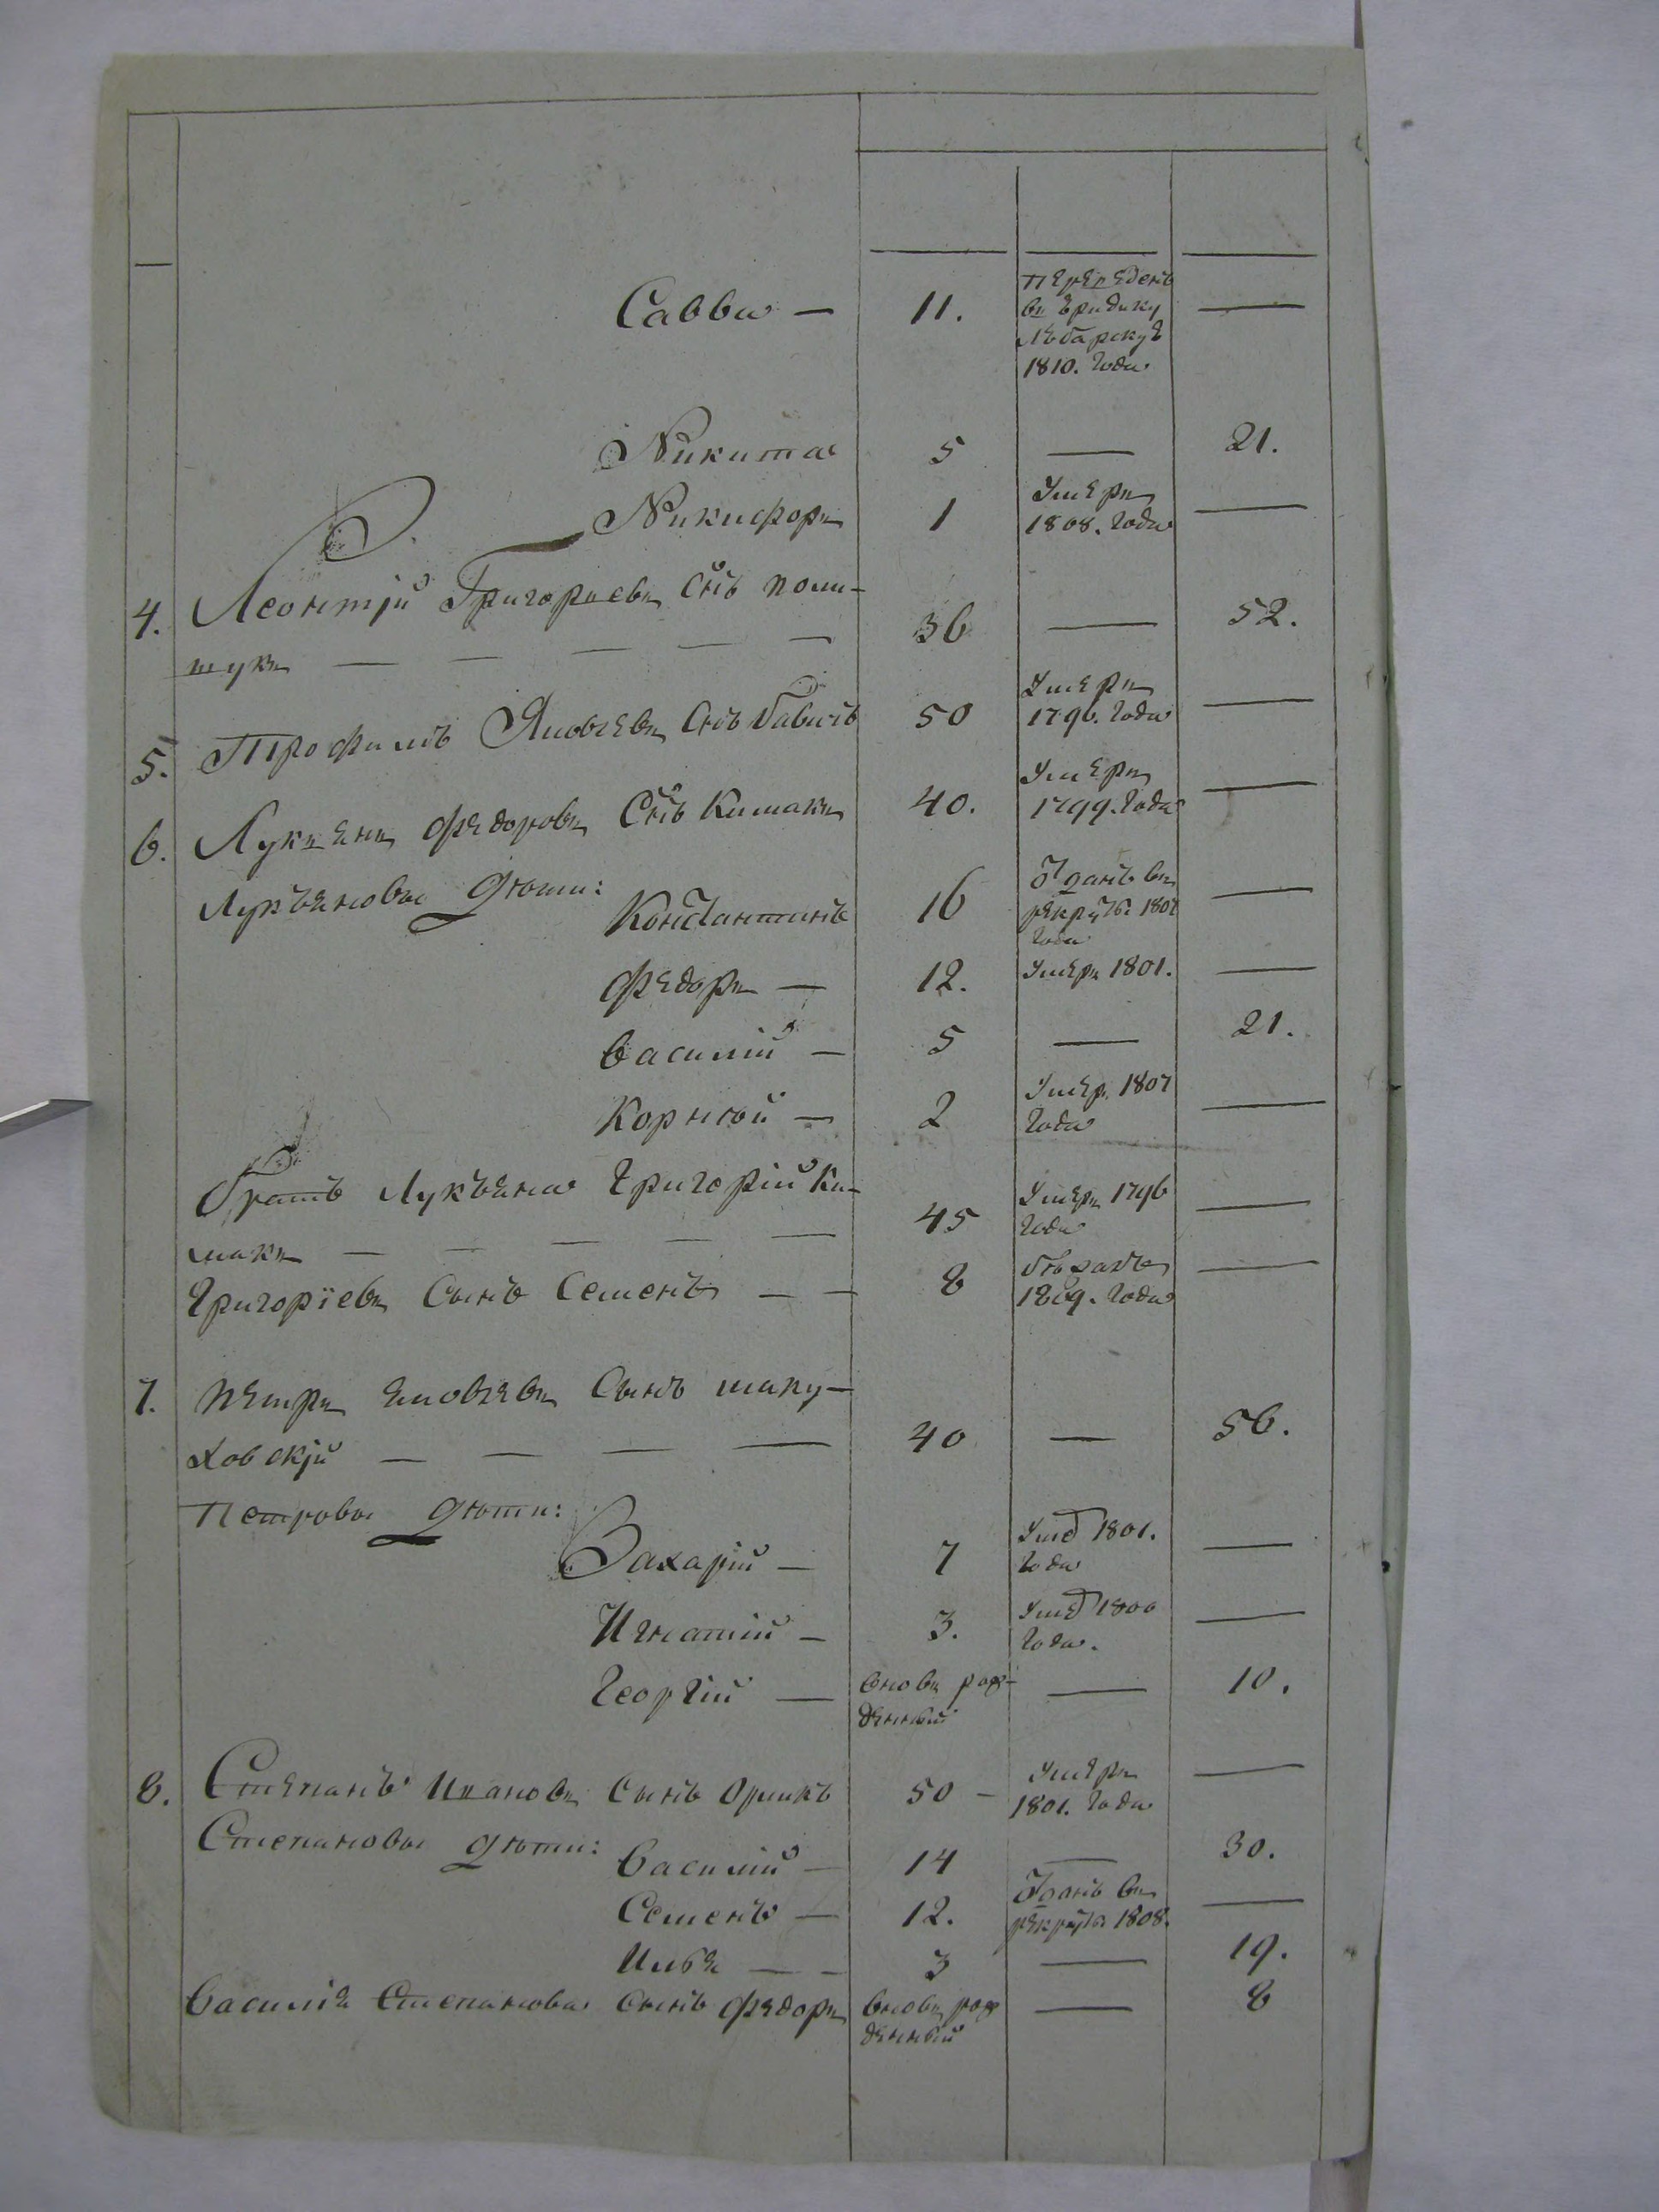 Савва — 11. переведенъ —
въ
1810. года
Никита 5 — 21.
Никифоръ 1 Умеръ —
1808. года
4. Леонтій Григорьевъ снъ поли-
щукъ — — — — — 36 — 52.
5. Трофимъ Яковлевъ снъ бабичъ 50 Умеръ —
1796. года
6. Лукьянъ федоровъ снъ Кишакъ 40. Умеръ —
1799. года
Лукьяновы дѣти: Константинъ 16 Отданъ въ —
рекруты 1807
года
федоръ — 12. Умеръ 1801. —
василій — 5 — 21.
Корнѣй — 2 Умеръ 1807 —
года
братъ Лукьяна Григорій Ки-
шакъ — — — — — 45 Умеръ 1796 —
года
Григоріевъ Сынъ Семенъ — — 8 бѣжалъ —
1809. года
7. петръ яковлевъ Сынъ маку-
ховскій — — — — 40 — 56.
петровы дѣти:
Захарій — 7 Умер 1801. —
года
Игнатій — 3. Умер 1800 —
года.
Георгій — вновь рож- — 10.
денный
8. Степанъ Ивановъ Сынъ 50 — Умеръ —
1801. года
Степановы дѣти: василій — 14 — 30.
Семенъ — 12. Отданъ въ —
рекруты 1808.
Илья — — 3 — 19.
василія Степанова сынъ федоръ вновь рож — 8
денный